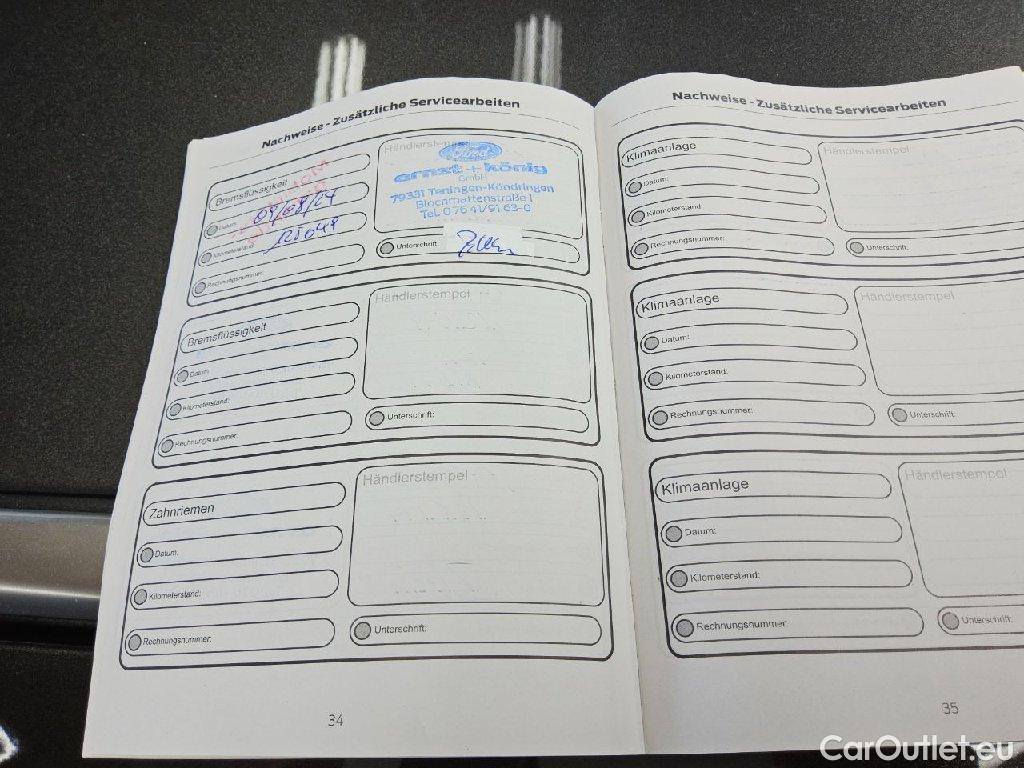 Nachweise - Zusätzliche Servicearbeiten
Bremsflüssigkeit
Datum:
09/08/24
Kilometerstand:
Rechnungsnummer:
Händlerstempel
Ford
ernst + könig
GmbH
79331 Teningen-Köndringen
Blochmattenstraße 1
Tel. 0 76 41/91 63-0
Unterschrift:
Bremsflüssigkeit
Datum:
Kilometerstand:
Rechnungsnummer:
Händlerstempel
Unterschrift:
Zahnriemen
Datum:
Kilometerstand:
Rechnungsnummer:
Händlerstempel
Unterschrift:
34
Nachweise - Zusätzliche Servicearbeiten
Klimaanlage
Datum:
Kilometerstand:
Rechnungsnummer:
Händlerstempel
Unterschrift:
Klimaanlage
Datum:
Kilometerstand:
Rechnungsnummer:
Händlerstempel
Unterschrift:
Klimaanlage
Datum:
Kilometerstand:
Rechnungsnummer:
Händlerstempel
Unterschrift:
35
CarOutlet.eu